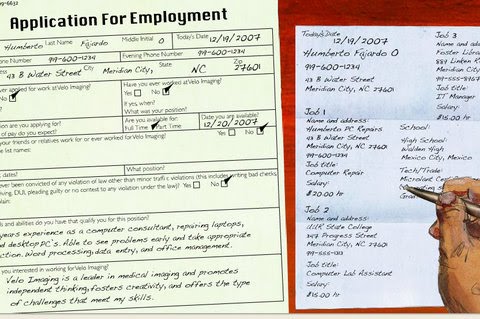 99-6632
Application For Employment
Last Name
Middle Initial
Today's Date
Humberto Fajardo O 12/19/2007
Phone Number
Evening Phone Number
919-600-1234 919-600-1234
Address City State Zip
43 B Water Street Meridian City, NC 27601
ever applied for work at Velo Imaging? Have you ever worked at Velo Imaging?
No Yes No
If yes, when?
What was your position?
position are you applying for? Are you available for: Date you are available?
of pay do you expect? Full Time Part Time 12/20/2007
your friends or relatives work for or ever worked for Velo Imaging? Yes No
list names:
What position?
, dates:
ever been convicted of any violation of law other than minor traffic violations (this includes writing bad checks,
, DUI, pleading guilty or no contest to any violation under the law)? Yes No
and abilities do you have that qualify you for this position?
years experience as a computer consultant, repairing laptops,
desktop PC's. Able to see problems early and take appropriate
action. Word processing, data entry, and office management.
you interested in working for Velo Imaging?
Velo Imaging is a leader in medical imaging and promotes
independent thinking, fosters creativity, and offers the type
of challenges that meet my skills.
Today's Date
12/19/2007
Humberto Fajardo O
919-600-1234
43 B Water Street
Meridian City, NC 27601
Job 1
Name and address:
Humberto PC Repairs
43 B Water Street
Meridian City, NC 27601
919-600-1234
Job title:
Computer Repair
Salary:
$20.00 hr
Job 2
Name and address:
UUK State College
347 Progress Street
Meridian City, NC 27601
Job title:
Computer Lab Assistant
Salary:
$15.00 hr
Job 3
Name and address
Foster Library
889 Linken
Meridian City
919-555-8967
Job title:
IT Manager
Salary:
$15.00 hr
School:
High School
Walden High
Mexico City, Mexico
Tech/Trade: